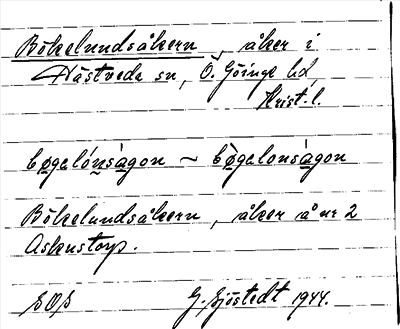 Bökelundsåkern, åker i
Hästveda sn, Ö. Göinge hd,
Krist. l.
bøgelónsågon ~ bøgelonságon
Bökelundsåkern, åker å nr 2
Askustorp.
G. Sjöstedt 1944.